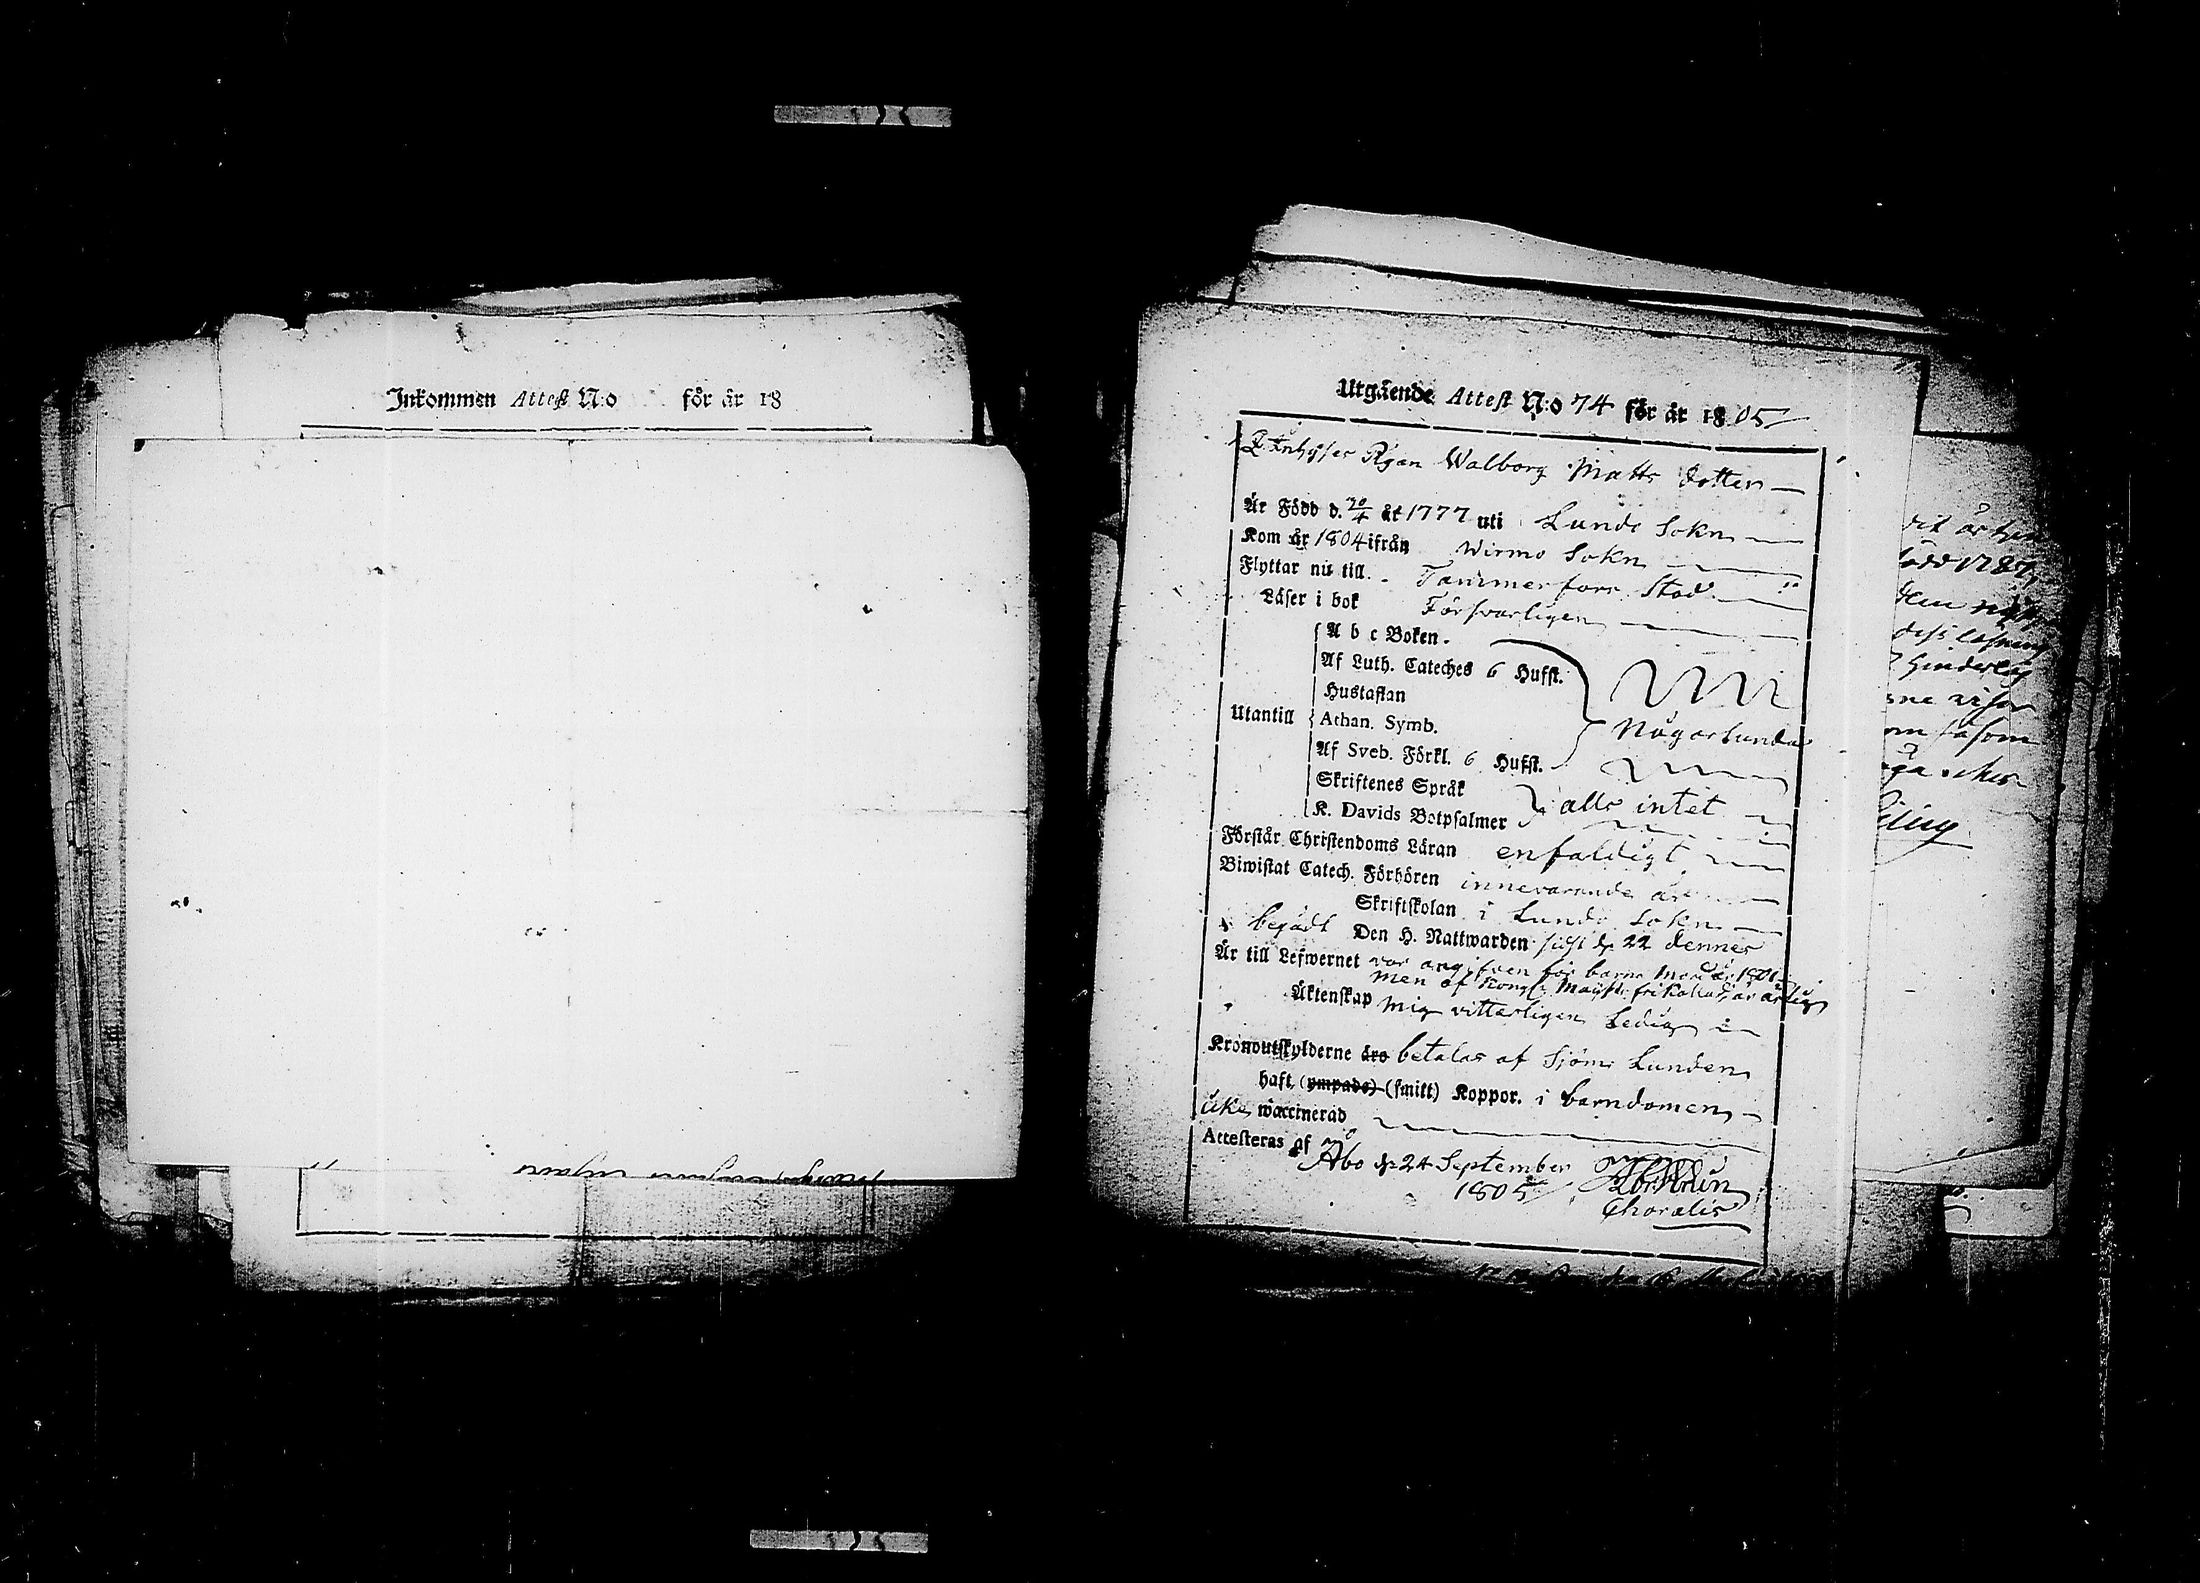 Inkommen Attest N:o för år 18
Utgående Attest N:o 74 för år 1805
Inhyses Pigan Walborg Matts dotter
Är Född d. 20/4 år 1777 uti Lundo Sokn
Kom år 1804 ifrån Wirmo Sokn
Flyttar nu till Tammerfors Stad
Läser i bok Försvarligen
A b c Boken.
Af Luth. Cateches 6 Hufst.
Hustaflan
Utantill Athan. Symb. Någorlunda
Af Sveb. Förkl. 6 Hufst.
Skriftenes Språk
K. Davids Botpsalmer alls intet
Förstår Christendoms Läran enfaldigt
Biwistat Catech. Förhören innevarande år
Skriftskolan i Lundo Sokn
begådt Den H. Nattwarden sidst d. 22 dennes
Är till Lefwernet var angifven för barna Mord år 1801
men af Kongl: Majst: frikallad, är ärlig
Äktenskap mig vitterligen Ledig
Kronoutskylderne äro betalas af Sjöm: Lunden
haft (ympade) (smitt) Koppor. i barndomen
icke waccinerad
Attesteras af
Åbo d. 24 September
1805
Choralis
vit år
född 1787
dem
dess läsning
hinderlig
visar
om såsom